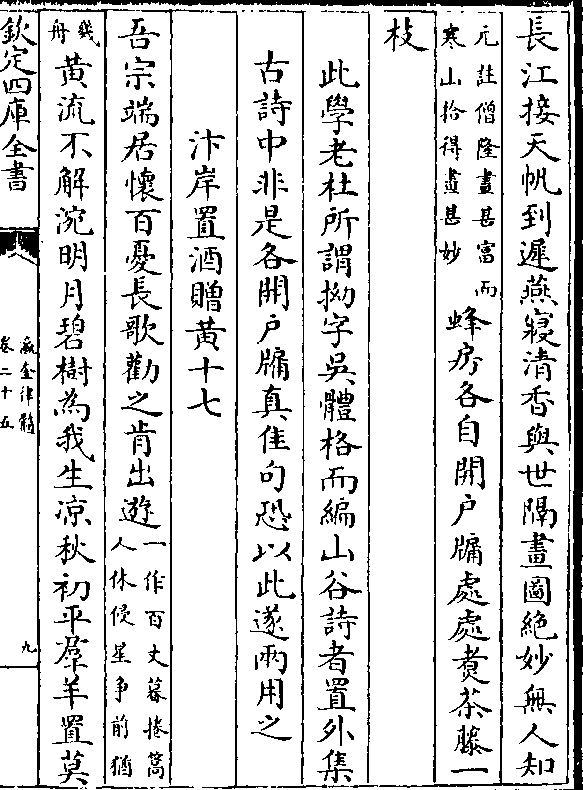 長江接天帆到遲燕寢清香與世隔畫圖絶妙無人知
元註僧隆畫甚富而
寒山拾得畫甚妙
蜂房各自開户牖處處煮茶藤一
枝
此學老杜所謂拗字吳體格而編山谷詩者置外集
古詩中非是各開户牖真佳句恐以此遂兩用之
汴岸置酒贈黄十七
吾宗端居懷百憂長歌勸之肯出遊
一作百丈暮捲篙
人休侵星争前猶
幾
舟
黄流不解涴明月碧樹為我生凉秋初平羣羊置莫
欽定四庫全書
瀛奎律髓
卷二十五
九